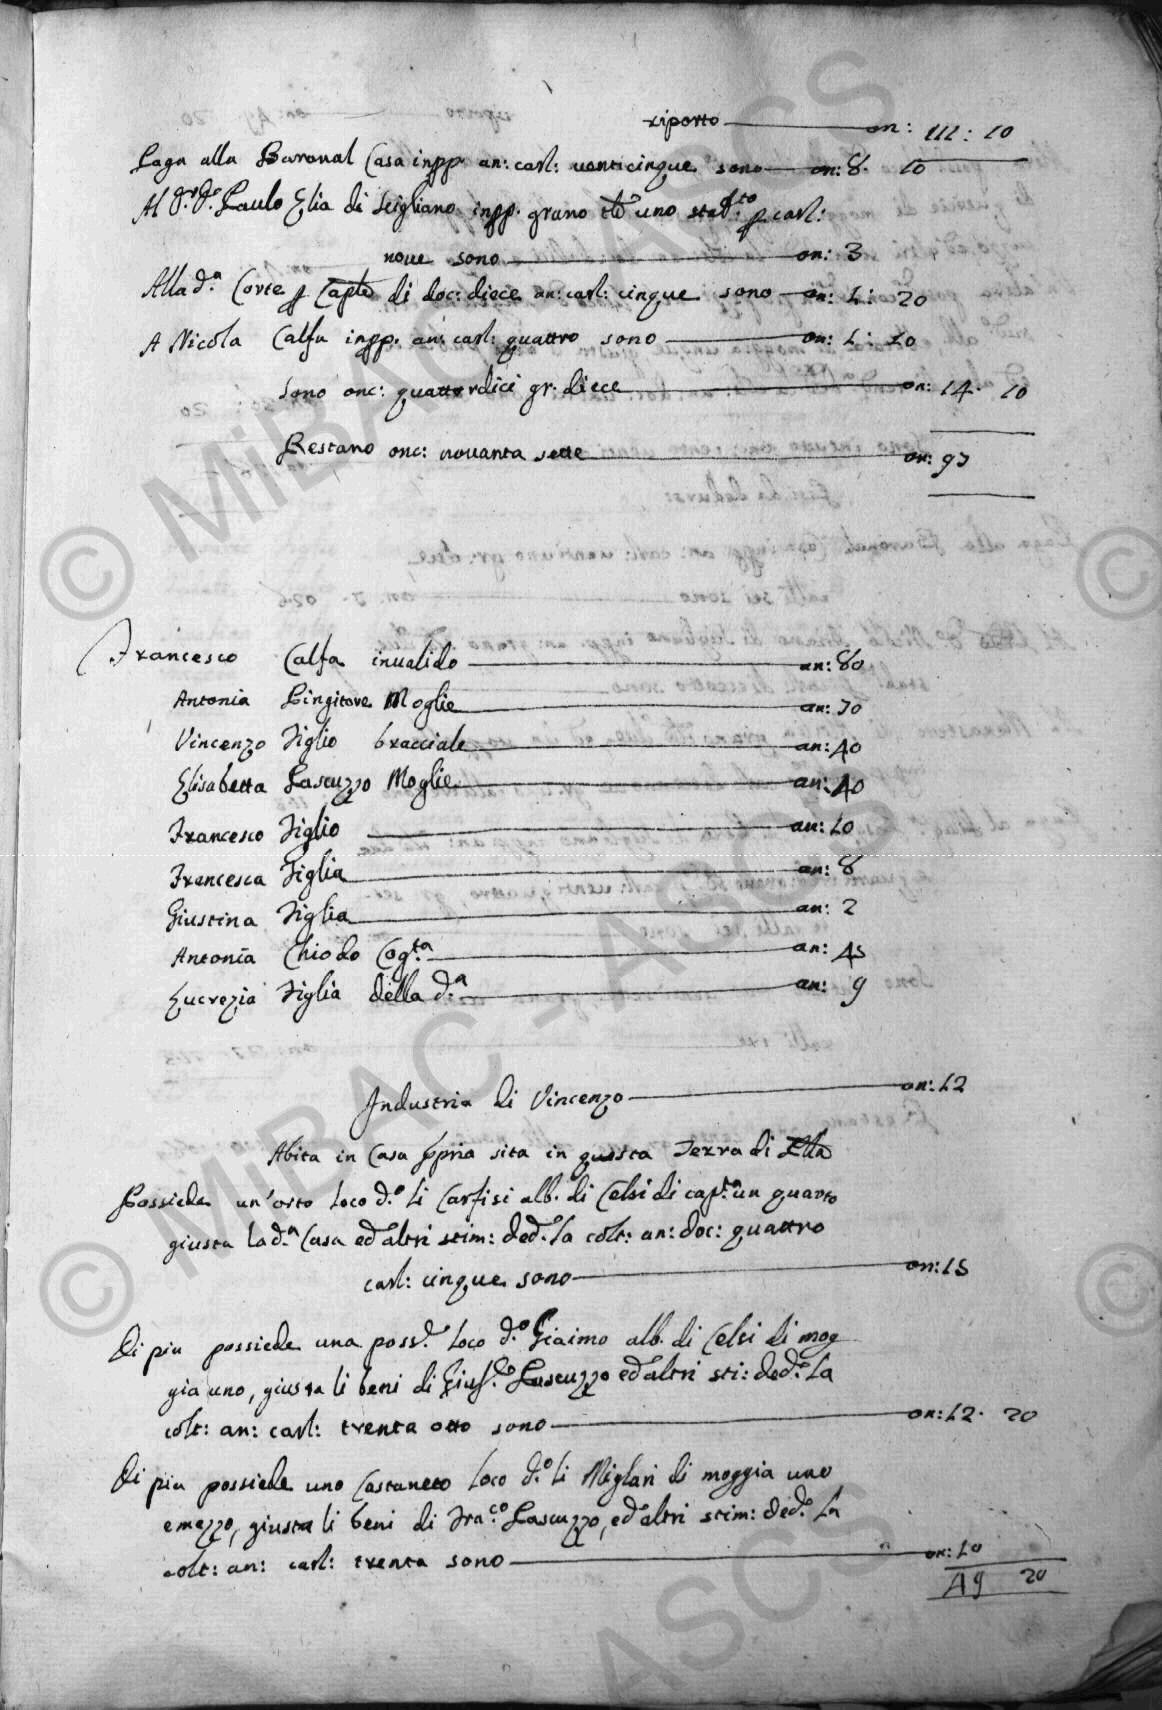 riporto on: 111: 10
Paga alla Baronal Casa inpp. an: carl: venticinque sono on: 8. 10
Al d.r d.e Paulo Elia di Scigliano inpp. grano tt.o uno stab.to p carl:
nove sono on: 3
Alla d.a Corte p Caple di doc: diece an: carl: cinque sono on: 1: 20
A Nicola Calfa inpp. an: carl: quattro sono on: 1: 10
Sono onc: quattordici gr: diece on: 14. 10
Restano onc: novanta sette on: 97
Francesco Calfa invalido an: 80
Antonia Pingitore Moglie an: 70
Vincenzo Figlio bracciale an: 40
Elisabetta Pascuzzo Moglie an: 40
Francesco Figlio an: 10
Francesca Figlia an: 8
Giustina Figlia an: 2
Antonia Chiodo Cog.ta an: 45
Lucrezia Figlia della d.a an: 9
Industria di Vincenzo on: 12
Abita in Casa ppria sita in questa Terra di
Possiede un'orto loco d.o li Carfisi alb. di Celsi di cap.tà un quarto
giusta la d.a Casa ed altri stim: ded.e la colt: an: doc: quattro
carl: cinque sono on: 15
Di piu possiede una poss.e loco d.o Giaimo alb. di Celsi di mog
gia uno, giusta li beni di Gius.e Pascuzzo ed altri sti: ded.e la
colt: an: carl: trenta otto sono on: 12. 20
Di piu possiede uno Castaneto loco d.o li Migliari di moggia uno
e mezzo, giusta li beni di Fra.co Pascuzzo, ed altri stim: ded.e la
colt: an: carl: trenta sono on: 10
49 20
© MiBAC - ASCS
© MiBAC - ASCS
©
©
ASCS